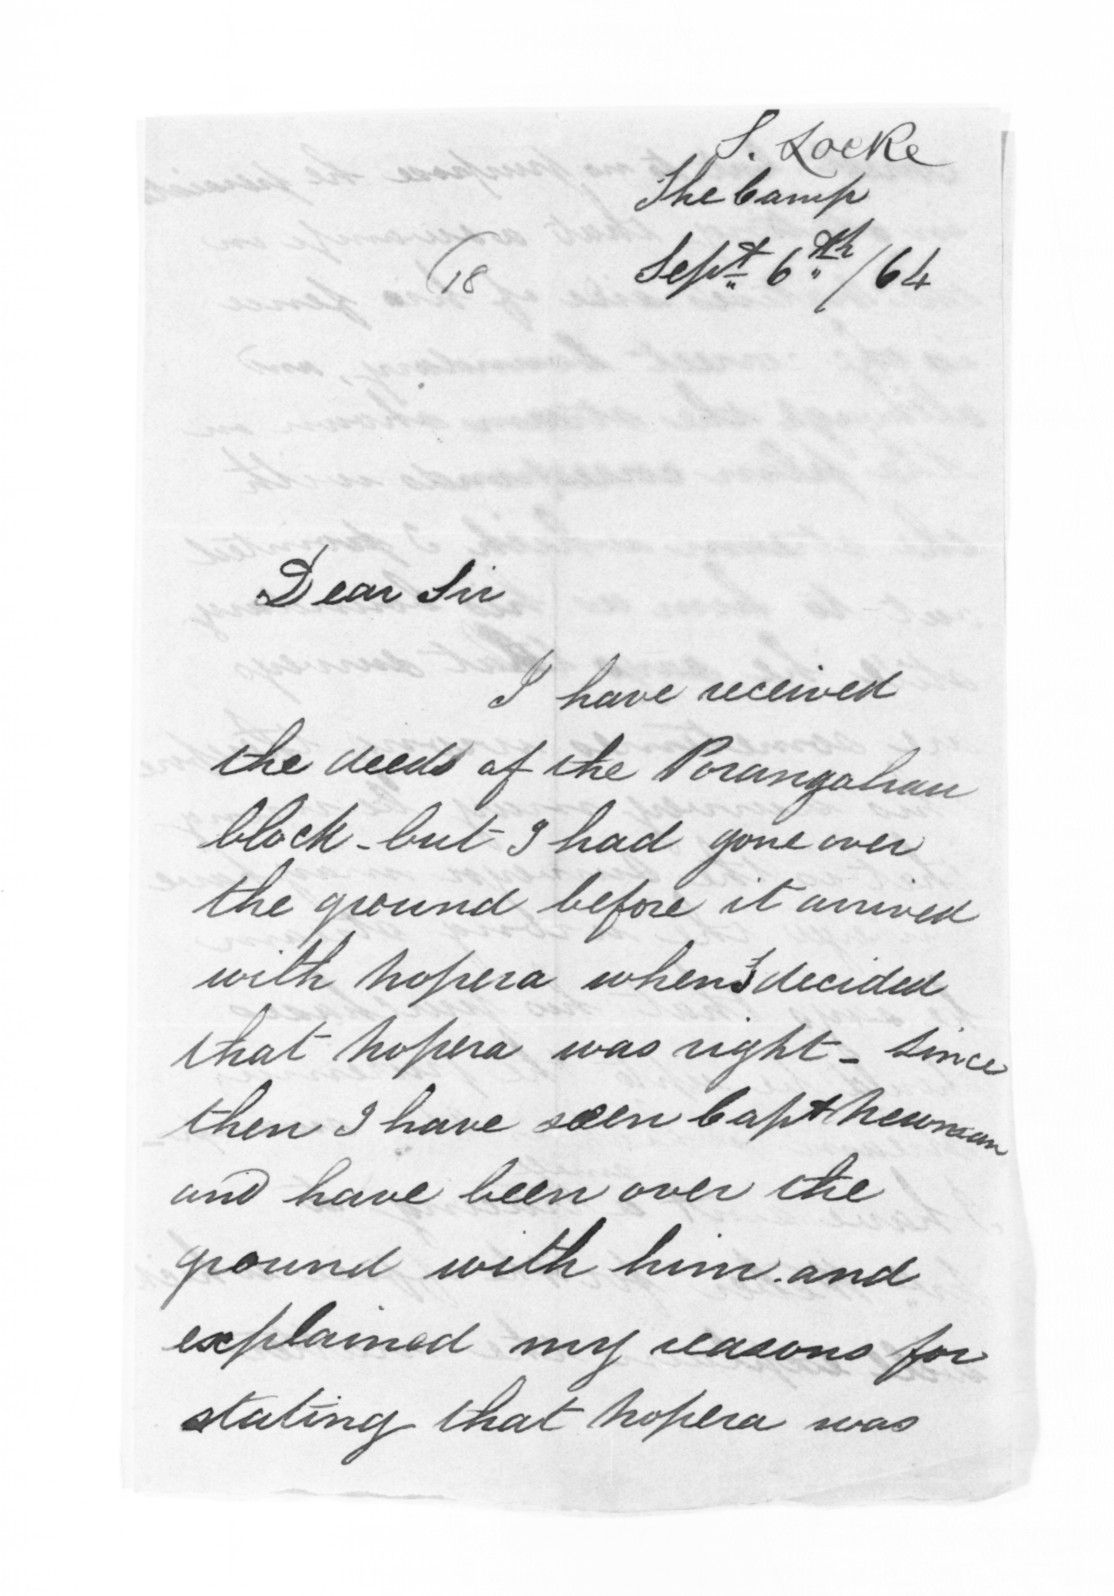 S. Locke
The Camp
Sept 6th/64
(18
Dear Sir
I have received
the deeds of the Porangahau
block - but I had gone over
the ground before it arrived
with hopera when I decided
that hopera was right - since
then I have seen Capt Newman
and have been over the
ground with him and
explained my reasons for
stating that hopera was